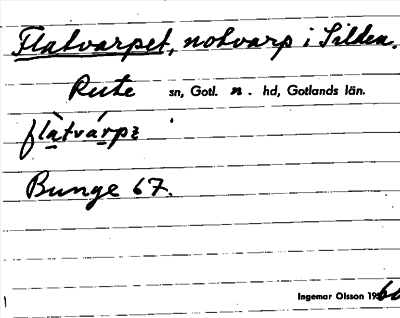 Flatvarpet, notvarp i Silden.
Rute sn, Gotl. n. hd, Gotlands län.
flàtvárpɛ
Bunge 67.
Ingemar Olsson 1966